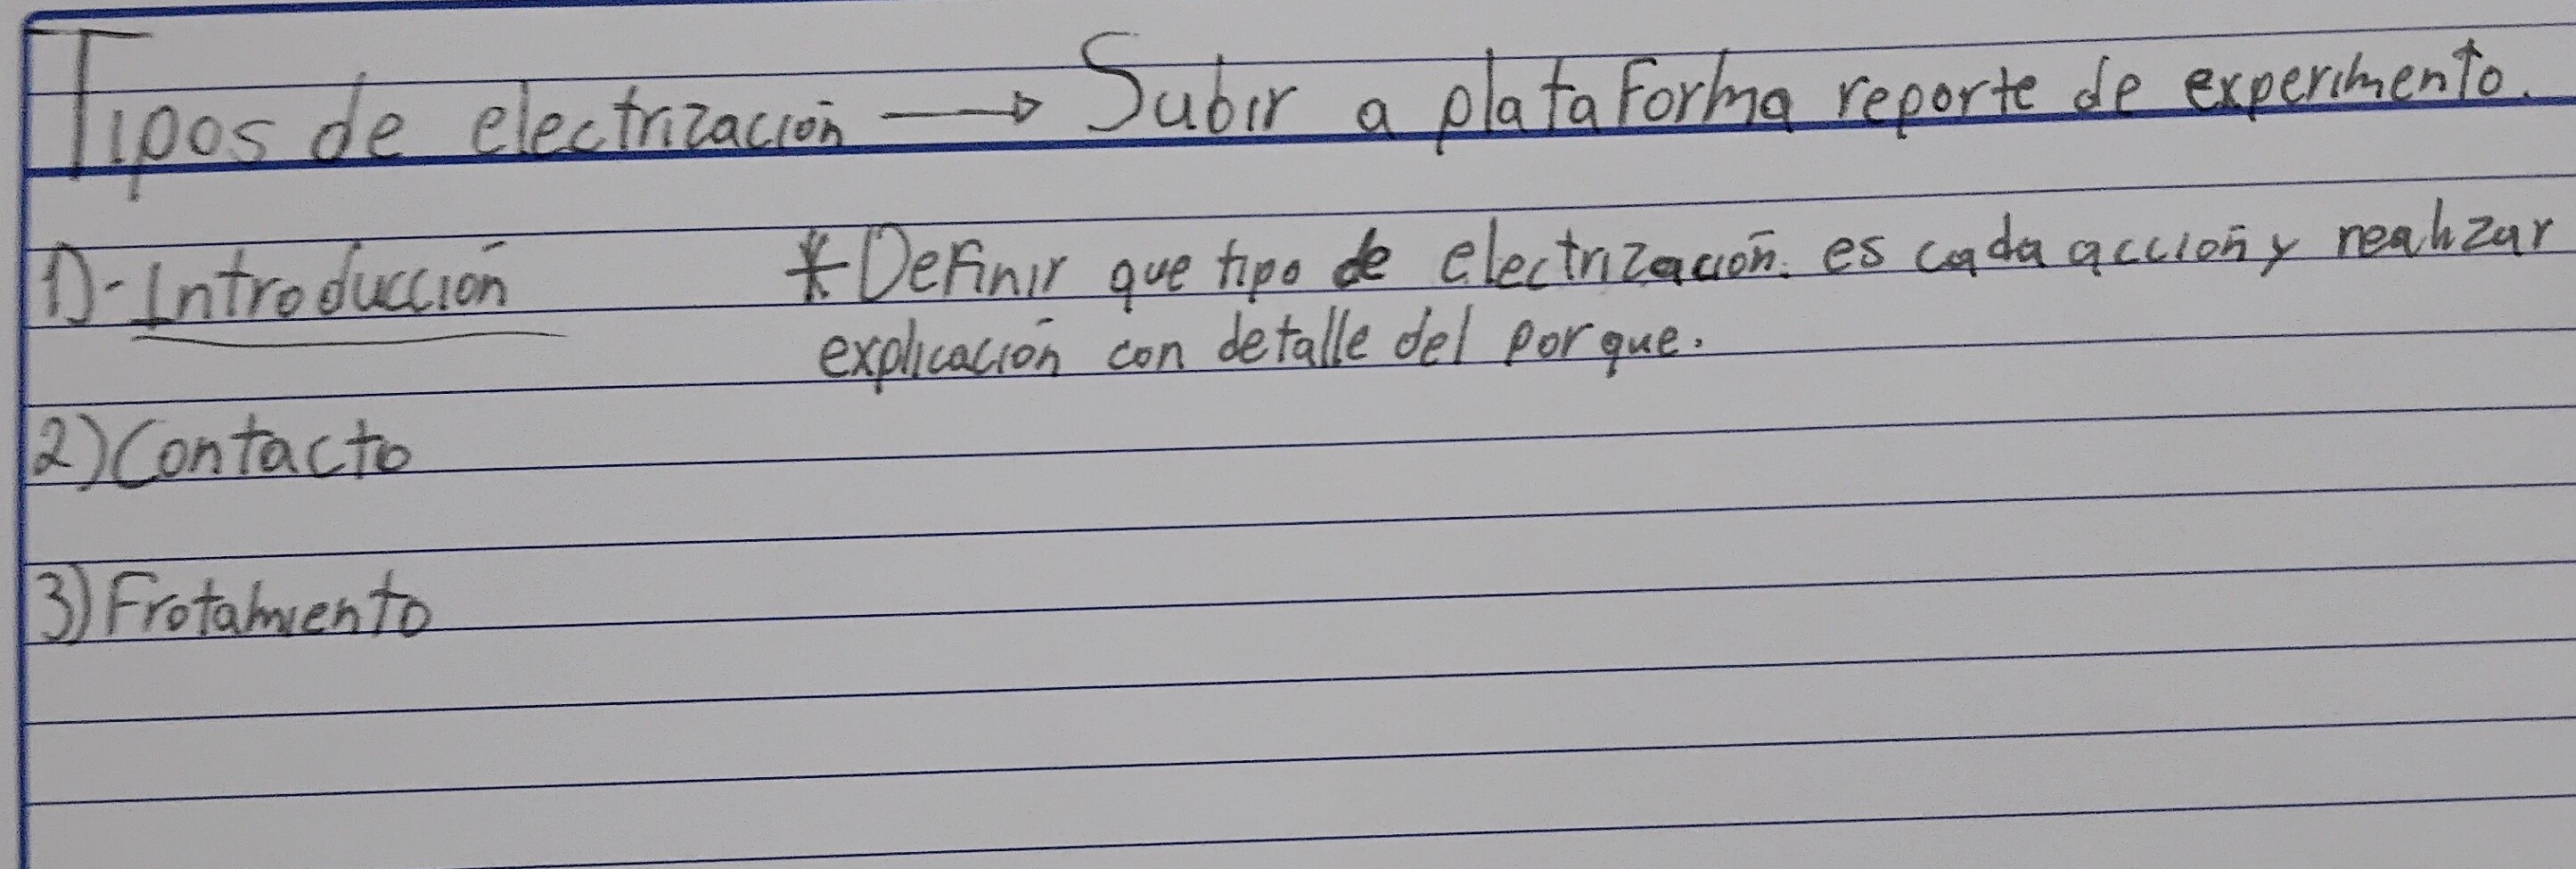 Tipos de electrización → Subir a plataforma reporte de experimento.
1)- Introducción * Definir que tipo de electrización. es cada acción y realizar
explicación con detalle del por que.
2) Contacto
3) Frotamiento